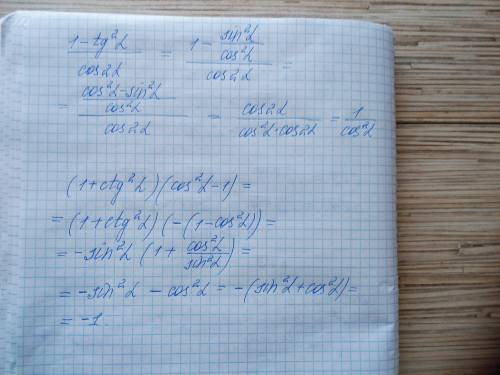 (1-tg²α)/cos2α = (1 - sin²α/cos²α)/cos2α =
= ((cos²α-sin²α)/cos²α)/cos2α = cos2α/(cos²α·cos2α) = 1/cos²α
(1+ctg²α)(cos²α-1)=
=(1+ctg²α)(-(1-cos²α))=
=-sin²α (1+ cos²α/sin²α)=
=-sin²α - cos²α = -(sin²α+cos²α)=
= -1